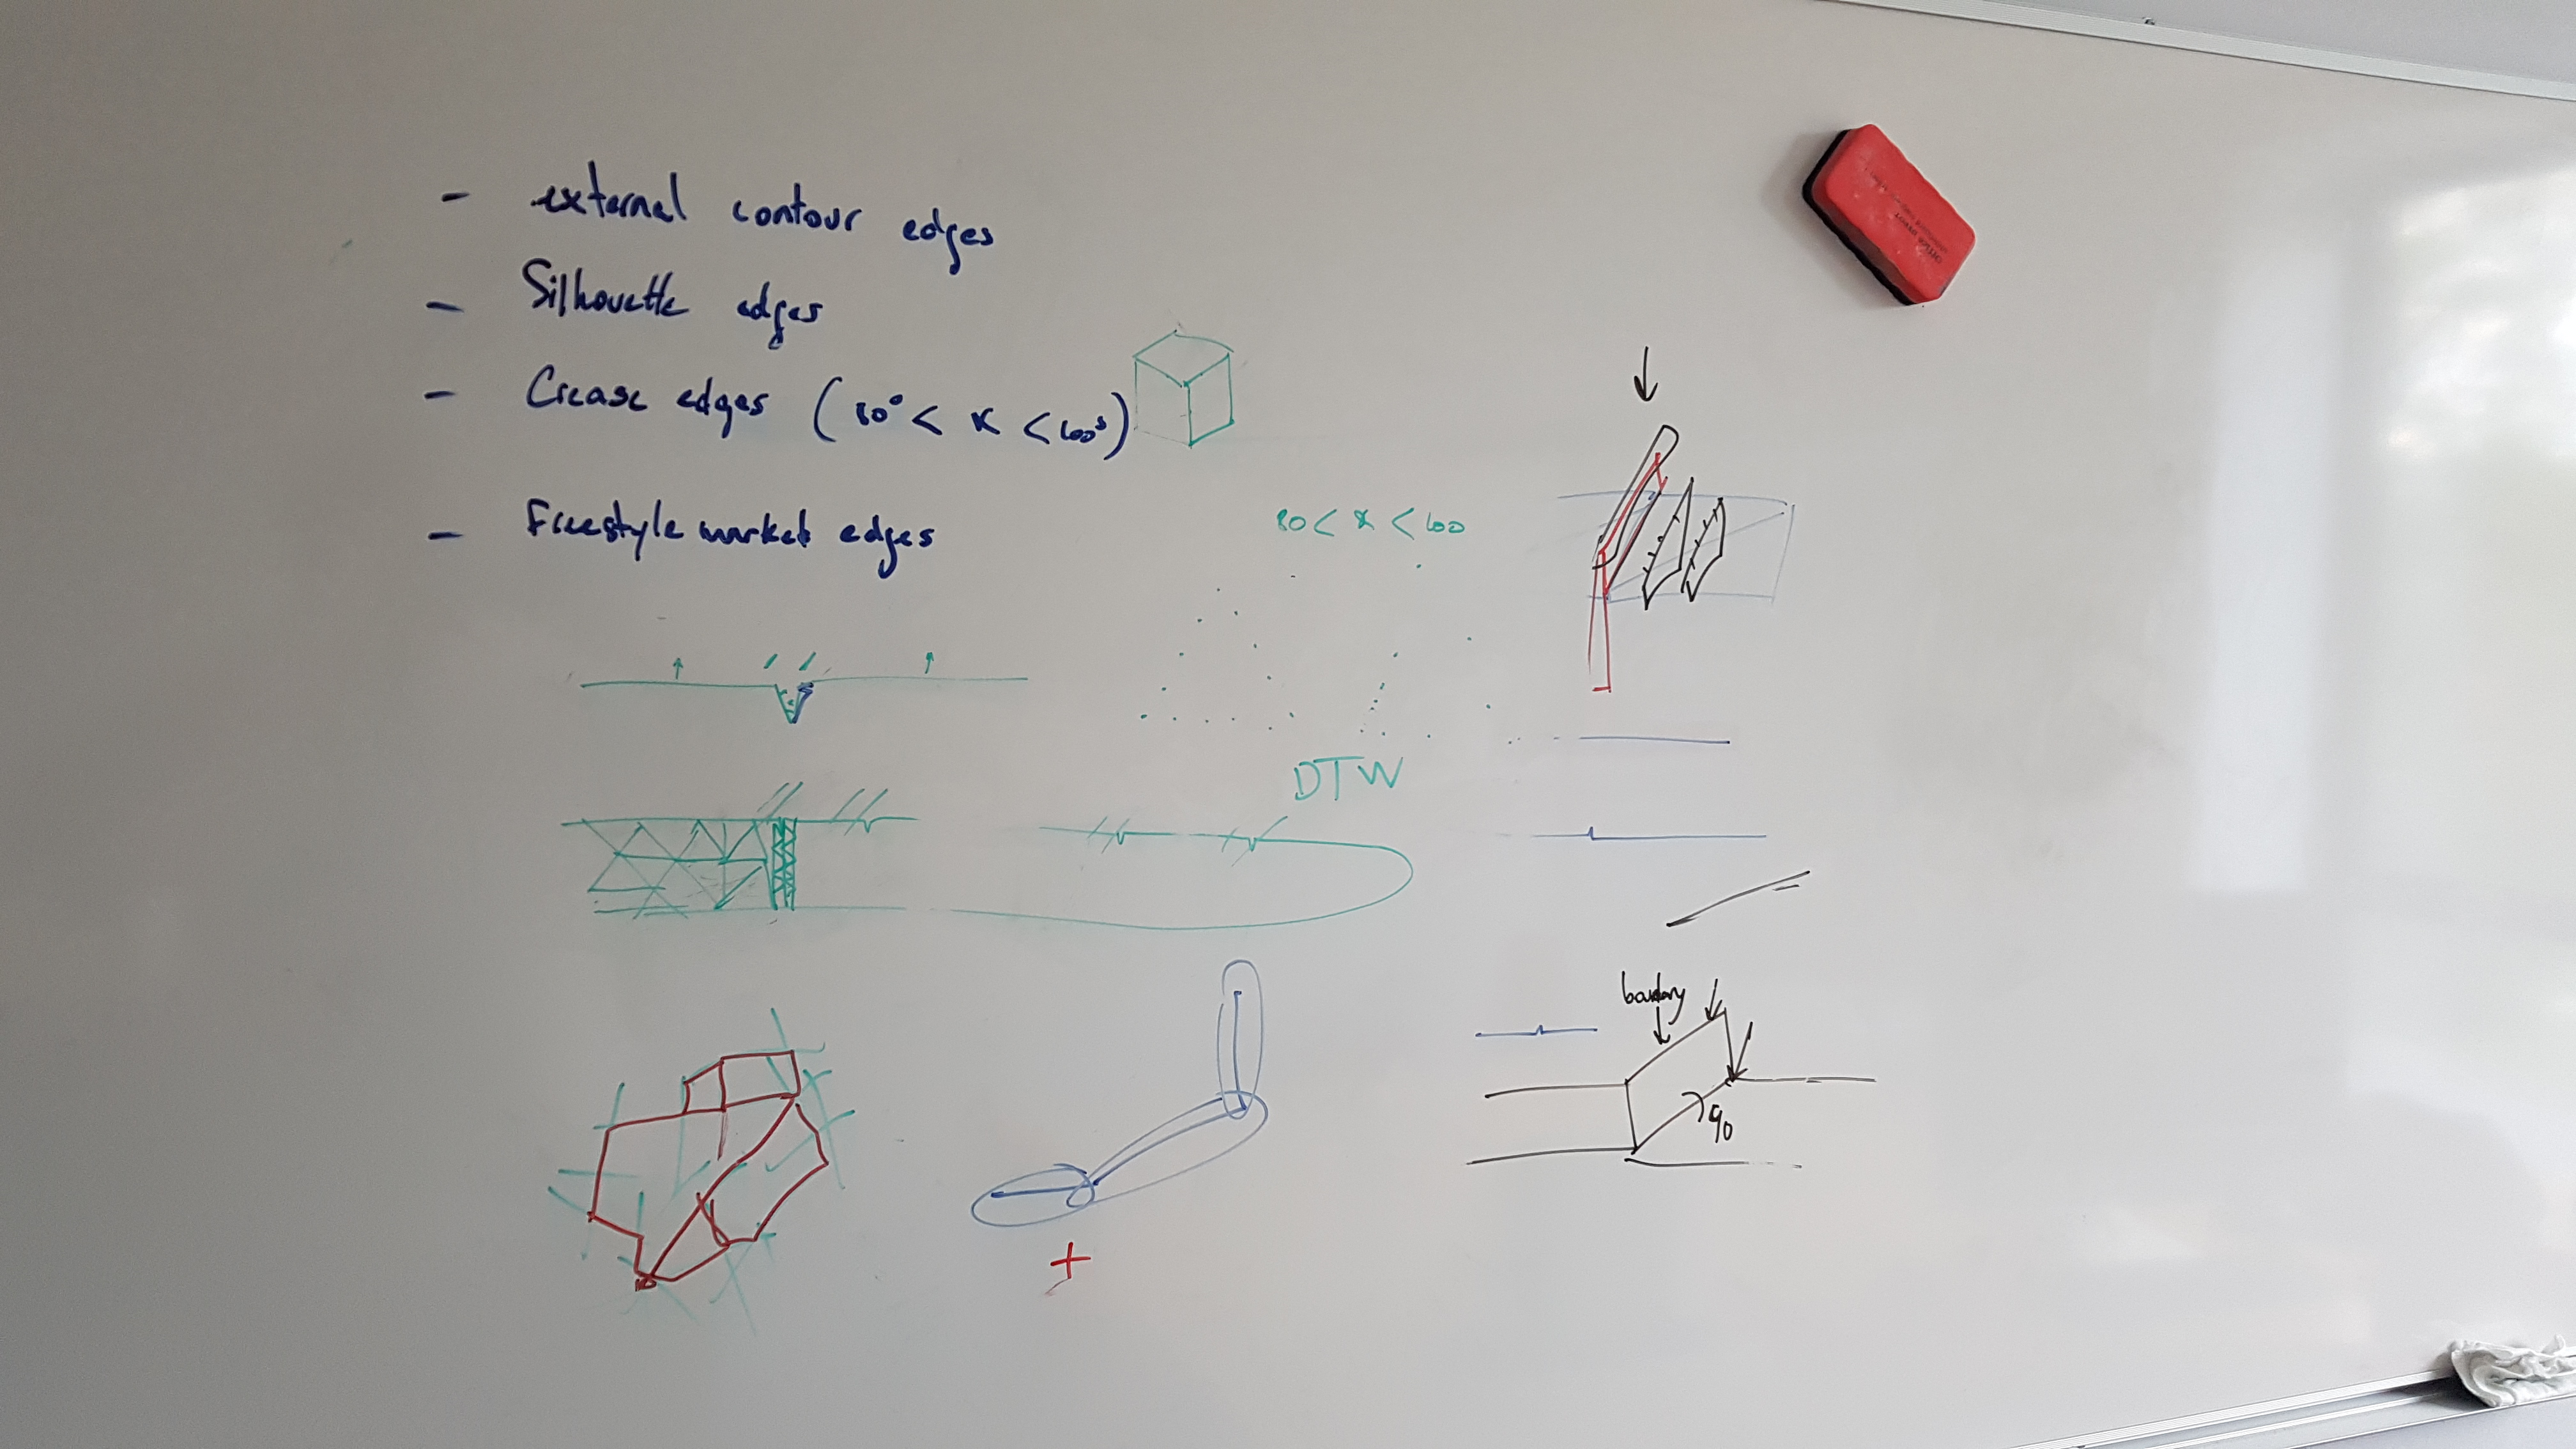 - external contour edges
- Silhouette edges
- Crease edges (80° < x < 100°)
- Freestyle market edges
80 < x < 100
DTW
boundary
90